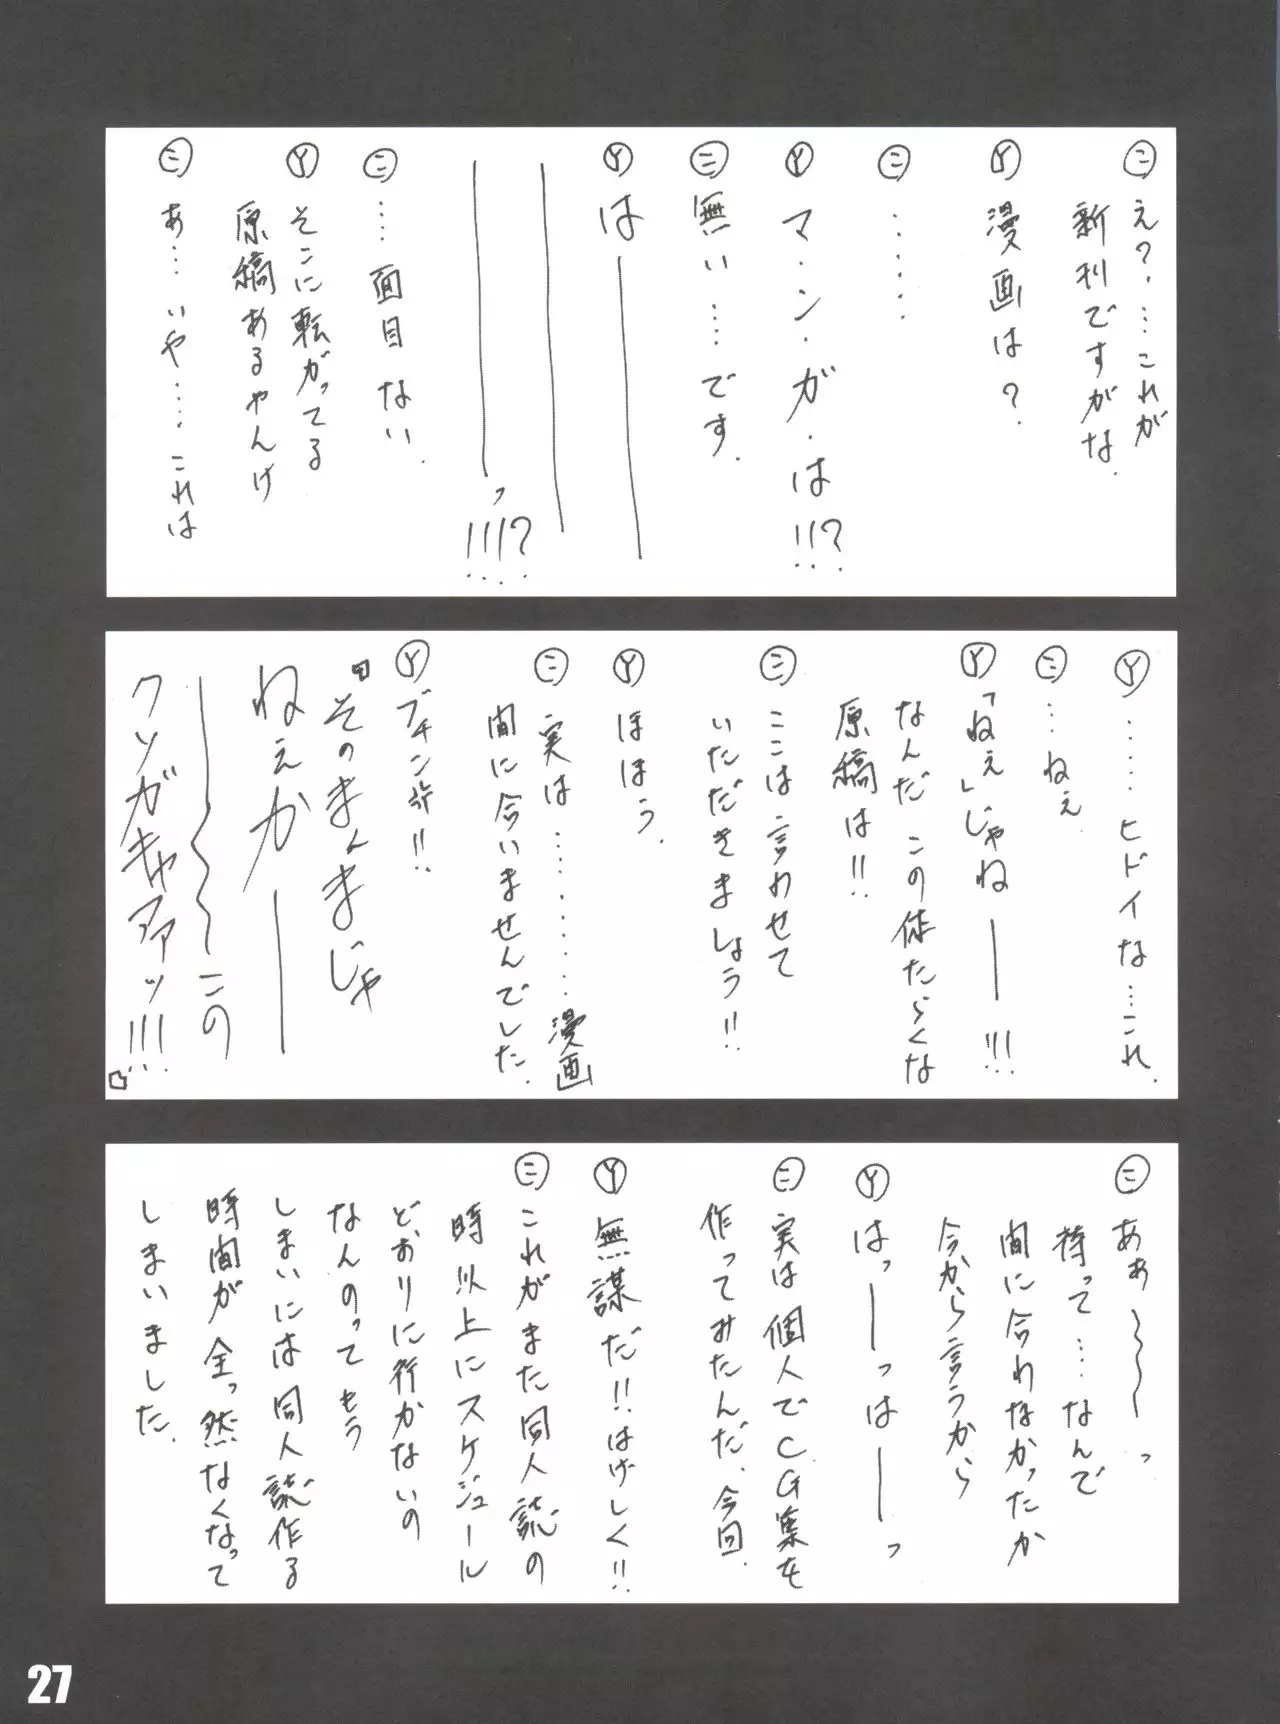 ㋥ え?・…これが
新刊ですがな.
Ⓨ 漫画は?.
㋥ ・・・・・
Ⓨ マ・ン・ガ・は!!?
㋥ 無い……です.
Ⓨ は――
――
――っ!!!?
㋥ ‥‥面目ない.
Ⓨ そこに転がってる
原稿あるやんけ
㋥ あ‥‥いや‥‥これは
Ⓨ ‥‥‥ヒドイな…これ.
㋥ …ねぇ
Ⓨ 「ねぇ」じゃね――!!!
なんだこの体たらくな
原稿は!!
㋥ ここは言わせて
いただきましょう!!
Ⓨ ほほう.
㋥ 実は…………漫画
間に合いませんでした.
Ⓨ ブチン
"そのまんまじゃ
ねぇか――
――〜〜この
クソガキャアァッ!!!
㋥ あぁ〜〜〜っ
待って‥‥なんで
間に合わなかったか
今から言うから
Ⓨ はっ――っは――っ
㋥ 実は個人でCG集を
作ってみたんだ.今回.
Ⓨ 無謀だ!!はげしく!!
㋥ これがまた同人誌の
時以上にスケジュール
どおりに行かないの
なんのってもう
しまいには同人誌作る
時間が全っ然なくなって
しまいました.
27